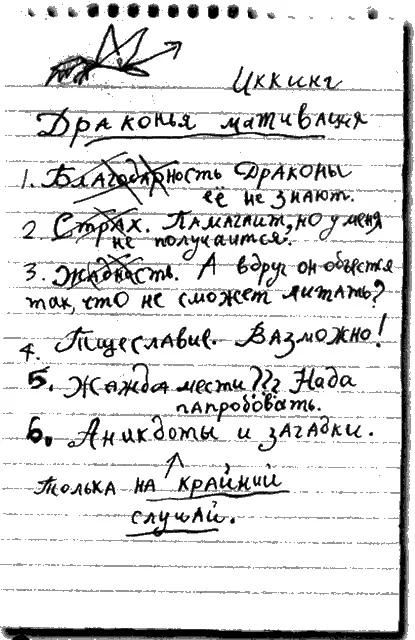 Иккинг
Драконья мативация
1. Благодарность Драконы
её не знают.
2 Страх. Памагаит, но у меня
не получаится.
3. Жадность. А вдруг он объестся
так, что не сможет литать?
4. Тщеславие. Вазможно!
5. Жажда мести??? Нада
папробовать.
6. Аникдоты и загадки.
толька на крайний
случай.